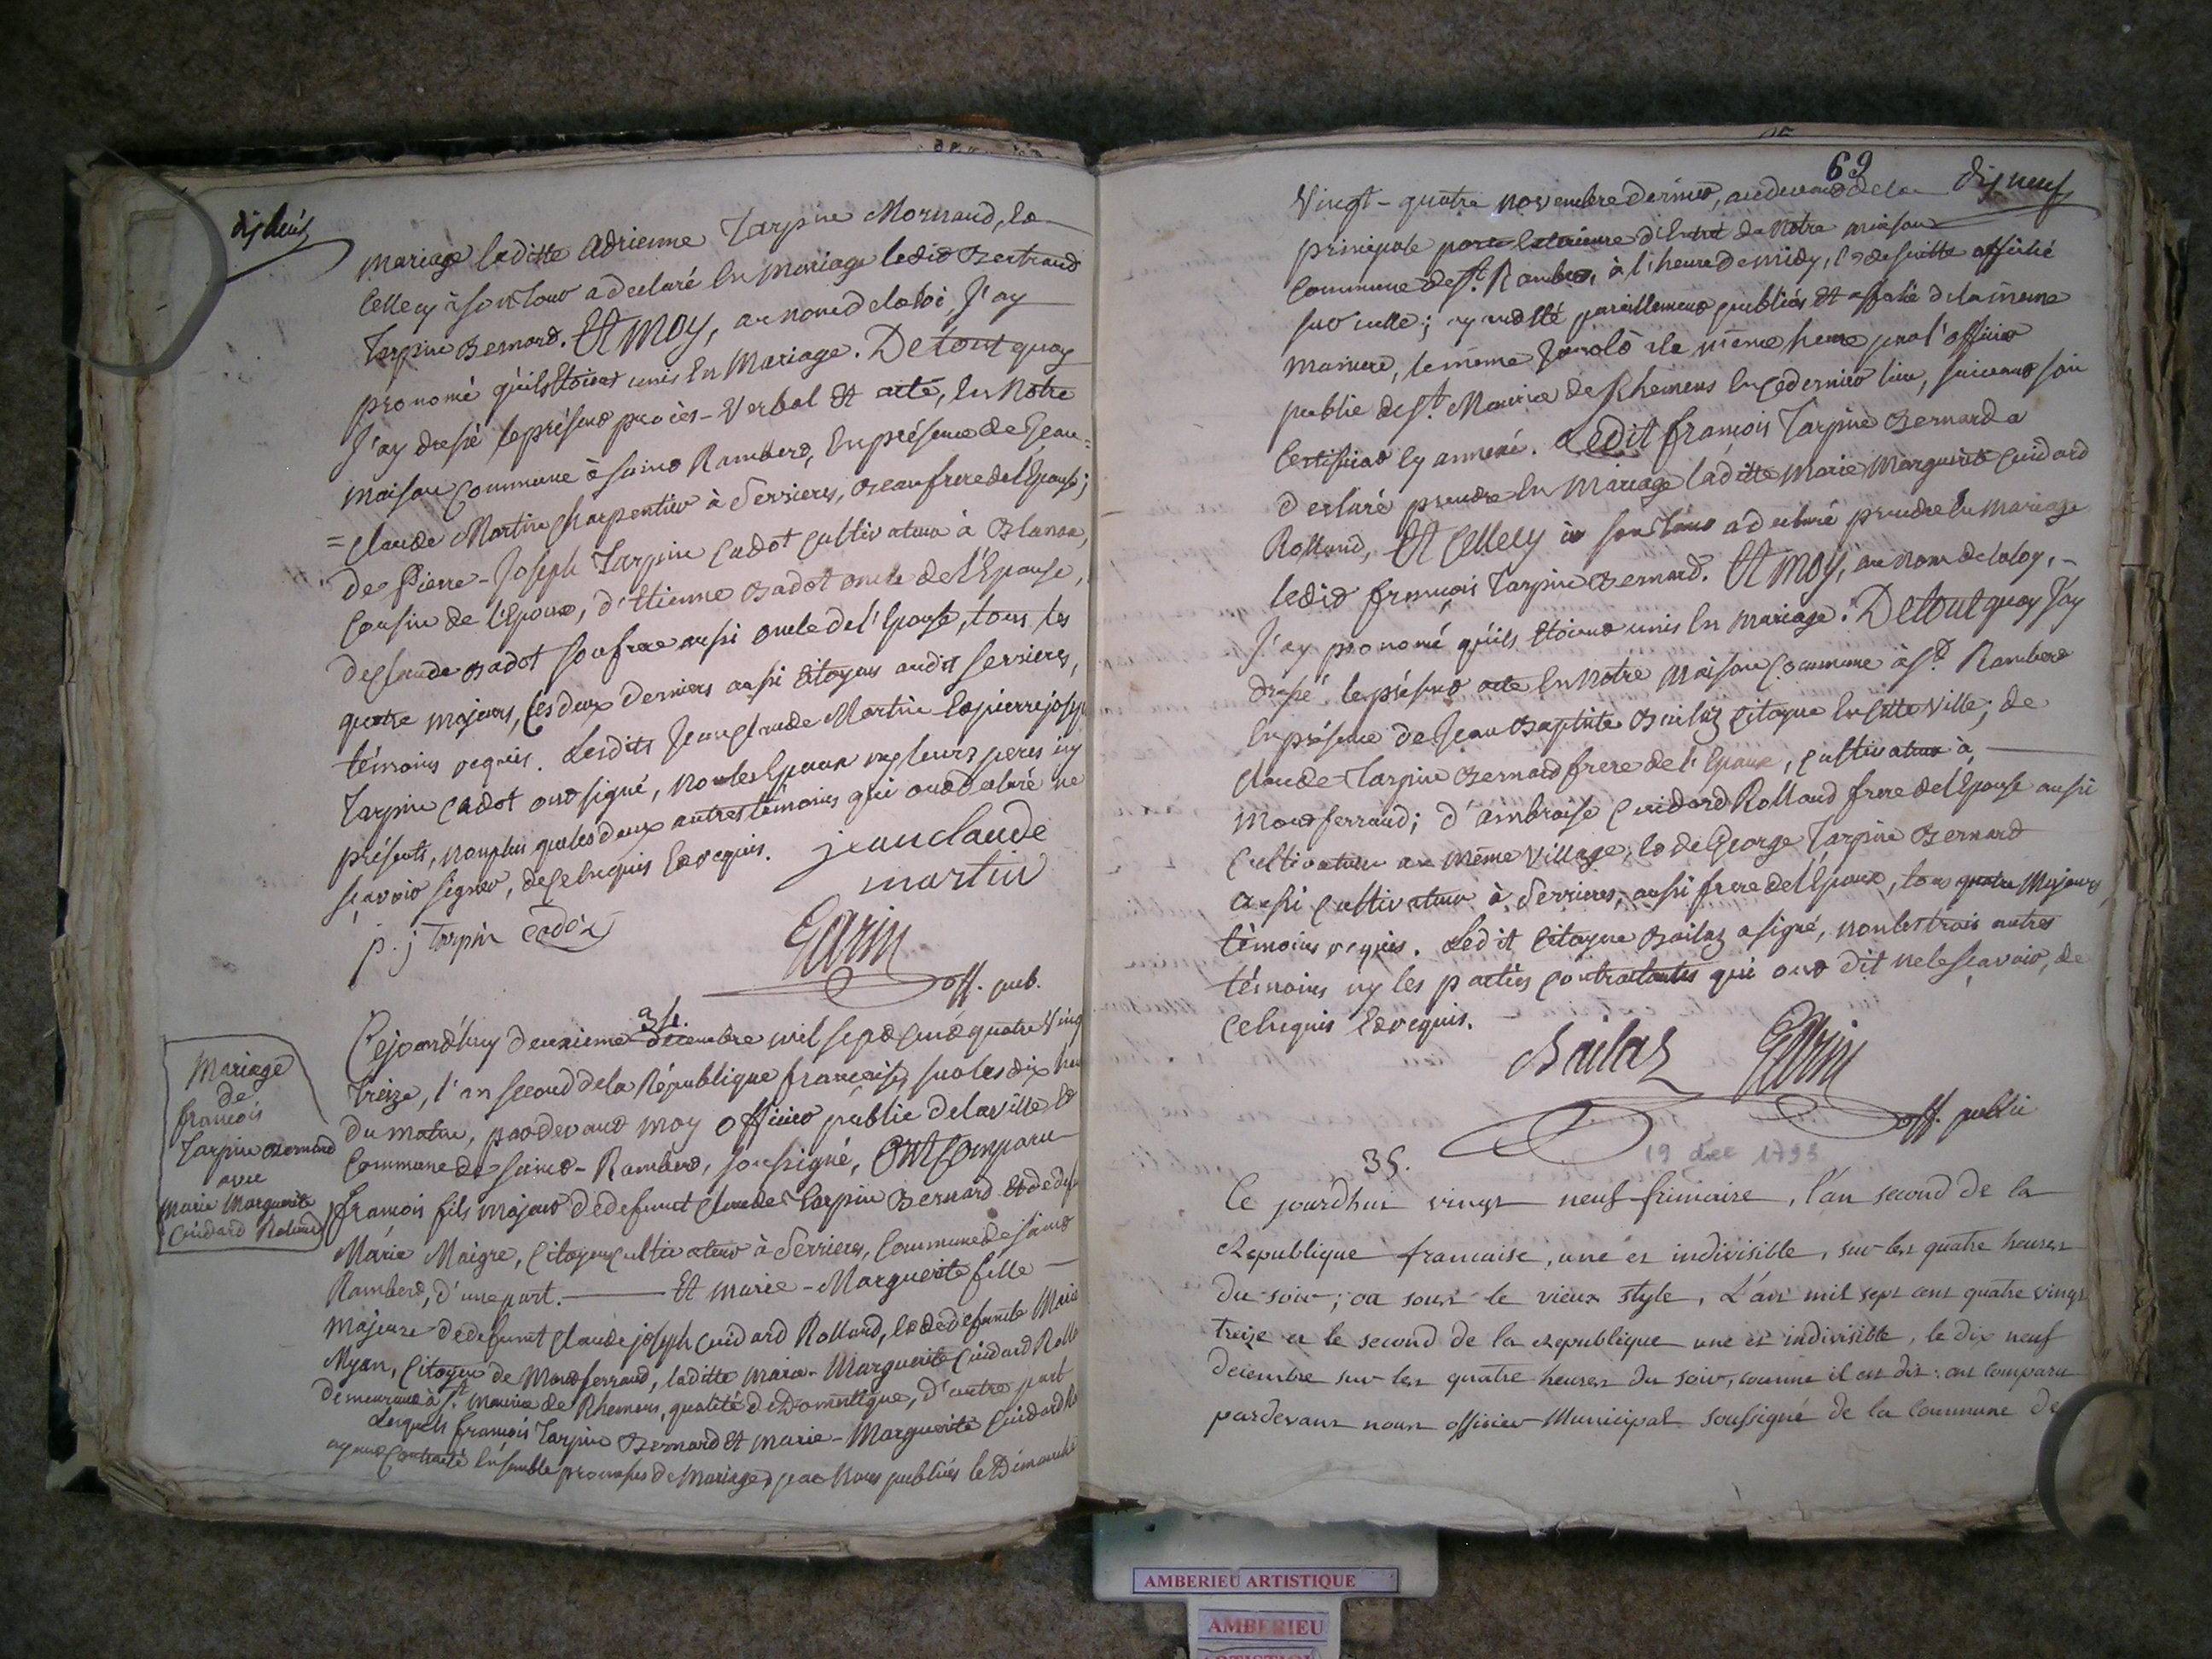 dixhuit
mariage laditte Adrienne Tarpin Mornand, et
cellecy à son tour a declaré en mariage ledit Bertrand
Tarpin Bernard. Et moy, au nom de la loi, j'ay
prononcé qu'ils étoient unis en Mariage. De tout quoy
j'ay dressé le présent procès-verbal et acte, en notre
maison commune à saint Rambert, en présence de Jean=
=claude Martin charpentier à Serrieres, beaufrere de l'Epouse;
de Pierre-Joseph Tarpin Cadot cultivateur à Blanaz,
cousin de l'Epoux, d'Etienne Badot oncle de l'Epouse,
de Claude Badot son frere aussi oncle de l'Epouse, tous les
quatre majeurs, les deux derniers aussi citoyens audit Serrieres,
témoins requis. Lesdits Jean claude Martin et pierre joseph
Tarpin Cadot ont signé, non les Epoux ny leurs peres icy
présents, non plus que les deux autres témoins qui ont declaré ne
sçavoir signer, de ce enquis et requis.
jean claude
martin
p. j tarpin
Garin
off. pub.
34.
Mariage
de
françois
Tarpin Bernard
avec
Marie Marguerite
Cuidard Roland
Cejourd'huy deuxieme décembre mil sept cent quatre Ving
treize, l'an second de la République française, sur les dix heu
du matin, pardevant moy officier public de la ville et
Commune de saint-Rambert, soussigné, Ont Comparu
françois fils majeur de defunt Claude Tarpin Bernard et de
Marie Maigre, Citoyen cultivateur à Serrieres, Commune de saint
Rambert, d'une part. Et marie-Marguerite fille
majeure de defunt Claude joseph Cuidard Rolland, et de defunte Marie
Myan, Citoyen de Montferrand, laditte Marie-Marguerite Cuidard Roll
demeurant à St. Maurice de Rhemens, qualité de Domestique, d'autre part
Lesquels françois Tarpin Bernard et marie-Marguerite Cuidard
ayant contracté ensemble promesses de Mariage, par Nous publiées le Dimanche
69
dixneuf
Vingt-quatre novembre dernier, audevant de la
principale porte exterieure d'entrée de notre maison
commune de St. Rambert, à l'heure de midy, et de suitte affiché
sur icelle; ayant été pareillement publiés et affiché de la même
maniere, le même jour et à la même heure par l'officier
public de St. Maurice de Rhemens en ce dernier lieu, suivant son
certificat cy annexé. Ledit françois Tarpin Bernard a
declaré prendre en mariage laditte Marie Marguerite Cuidard
Rolland, Et cellecy à son tour a declaré prendre en mariage
ledit françois Tarpin Bernard. Et moy, au nom de la loy,
j'ay prononcé qu'ils étoient unis en mariage. De tout quoy j'ay
dressé le présent acte en notre Maison Commune à St. Rambert
en présence de Jean Baptiste Bailaz citoyen en cette ville; de
Claude Tarpin Bernard frere de l'Epoux, cultivateur à
Montferrand; d'ambroise Cuidard Rolland frere de l'Epouse aussi
cultivateur au même village, et de George Tarpin Bernard
aussi cultivateur à Serrieres, aussi frere de l'Epoux, tous quatre Majeurs,
témoins requis. Ledit Citoyen Bailaz a signé, non les trois autres
témoins ny les parties contractantes qui ont dit ne le sçavoir, de
ce enquis et requis.
Bailaz
Garin
off. public
35.
19 dec 1793
Ce jourdhui vingt neuf frimaire, l'an second de la
Republique francaise, une et indivisible, sur les quatre heures
du soir; ou sous le vieux style, L'an mil sept cent quatre vingt
treize et le second de la Republique une et indivisible, le dix neuf
decembre sur les quatre heures du soir, comme il est dit: ont comparu
pardevant nous officier Municipal soussigné de la Commune de
AMBERIEU ARTISTIQUE
AMBERIEU
ARTISTIQUE